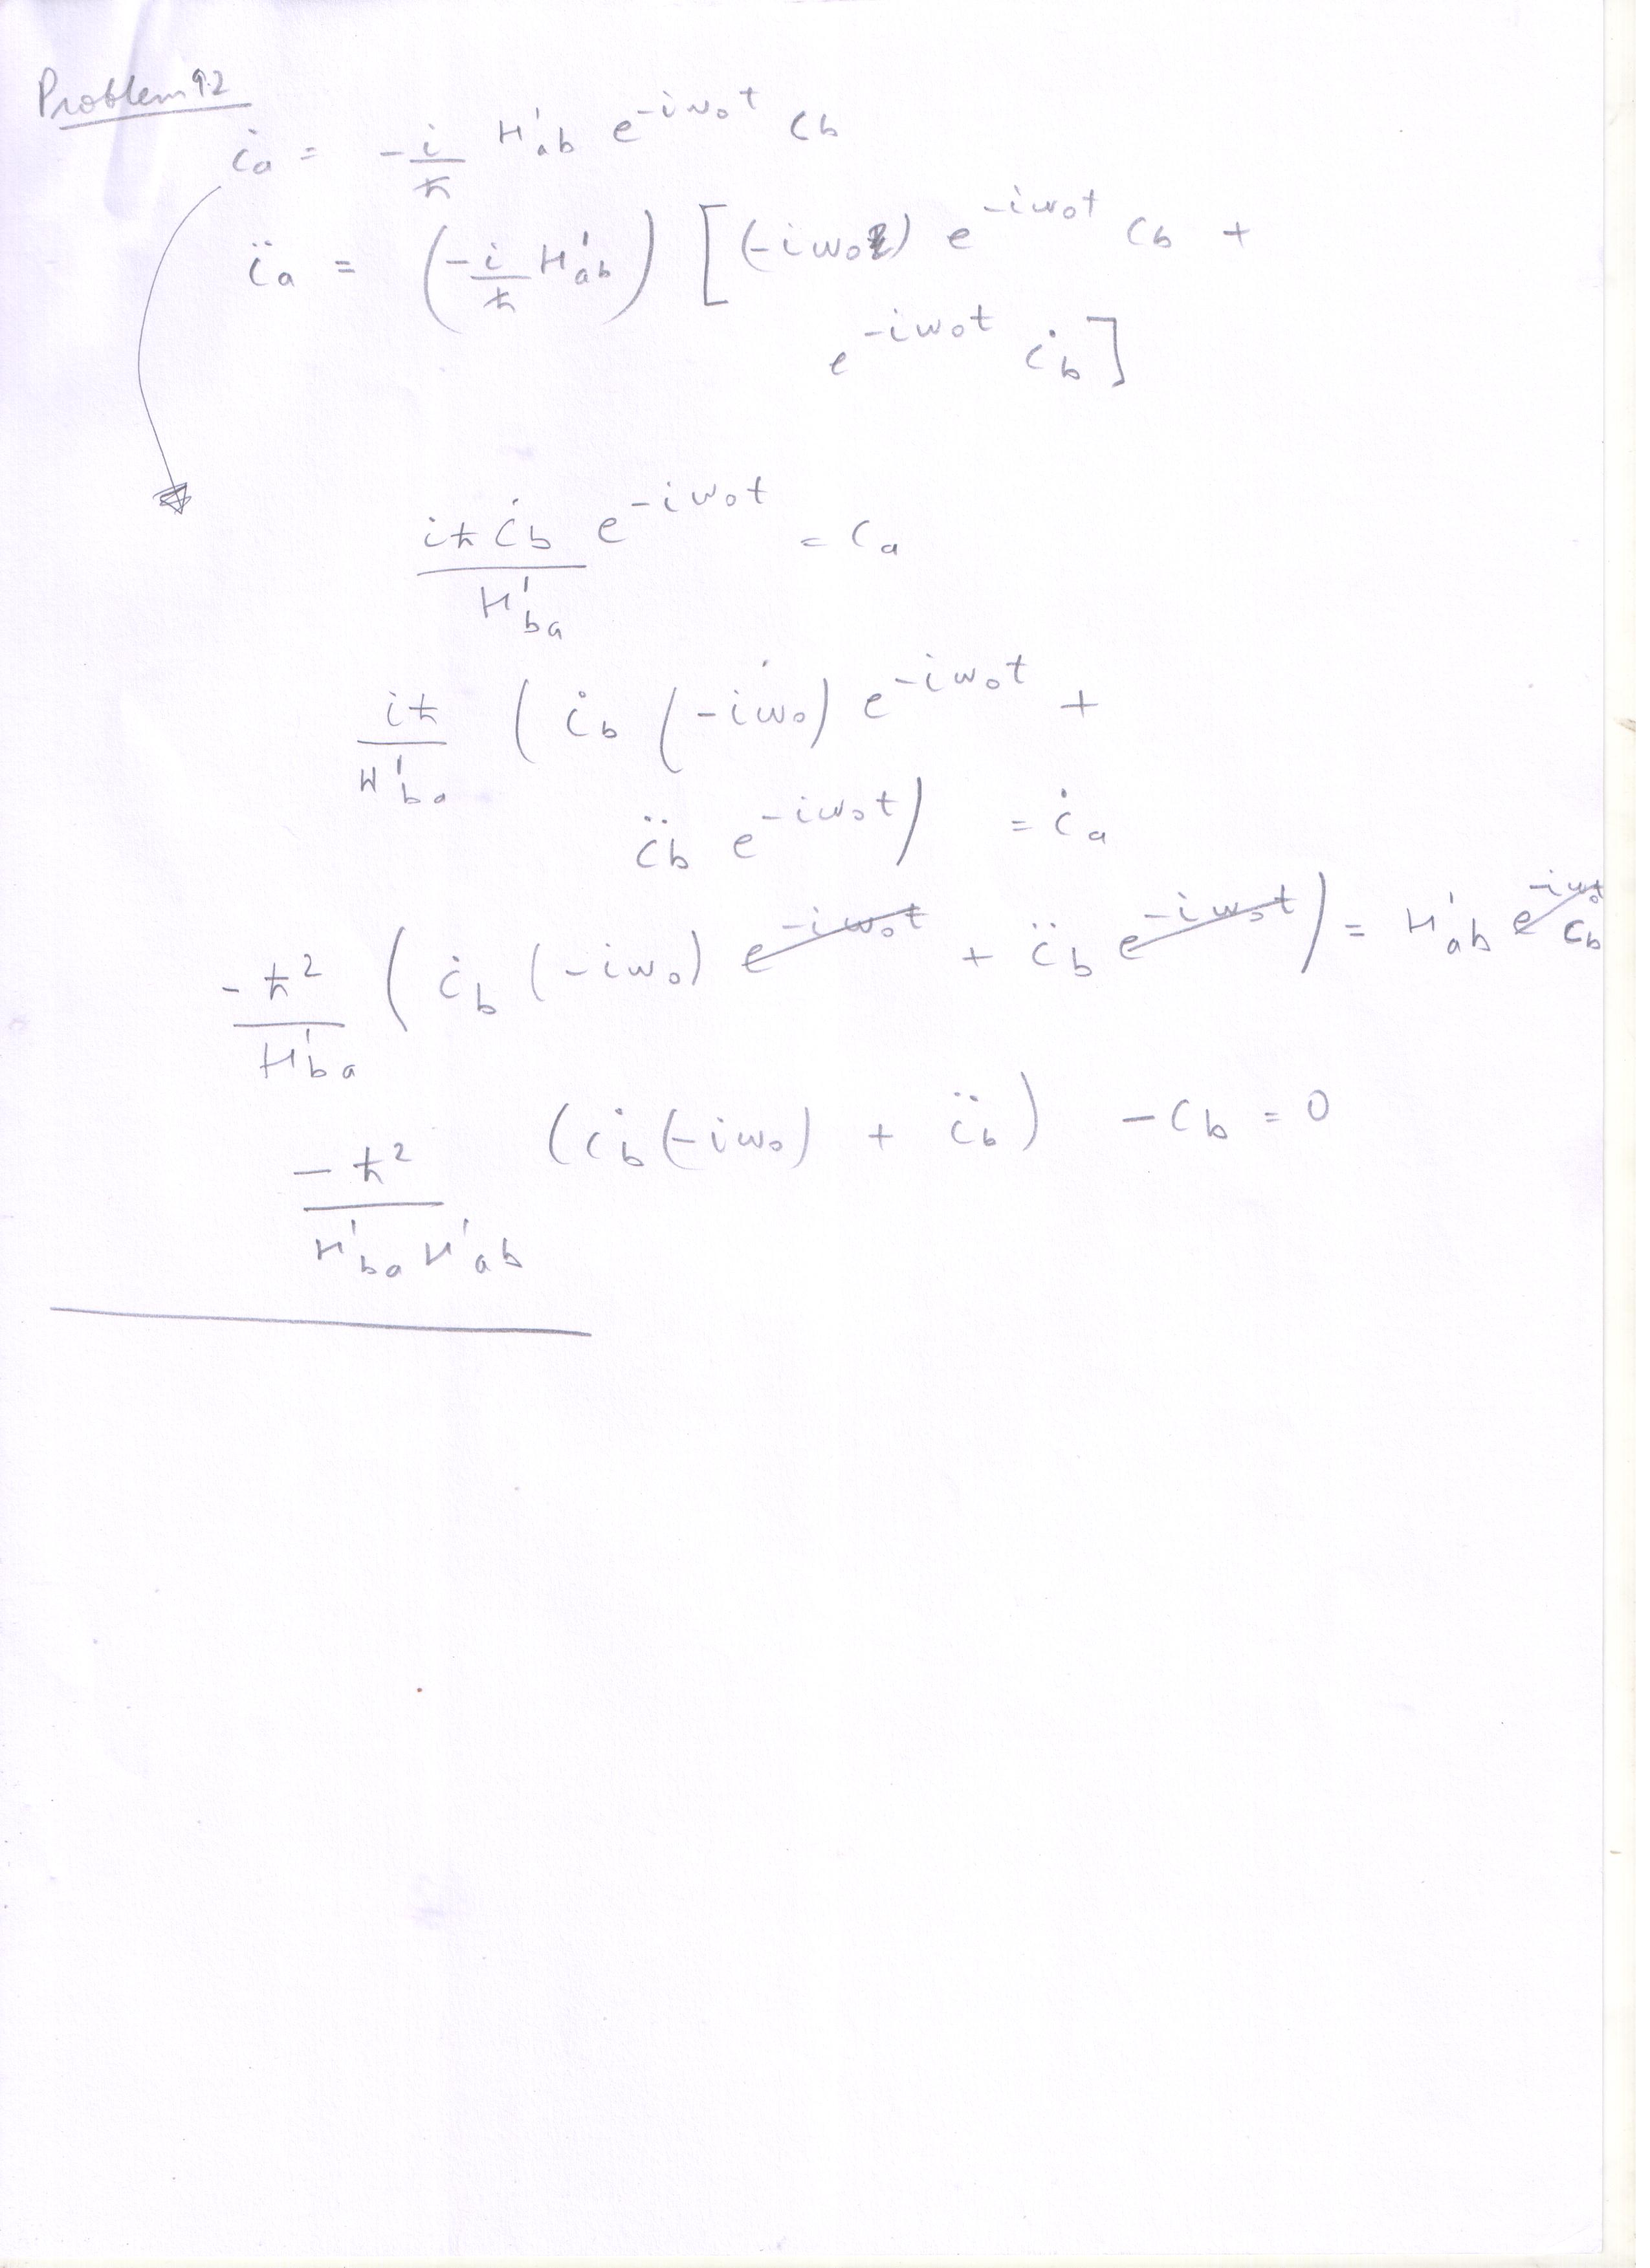 Problem 9.2
ċₐ = -i/ħ H'ab e^{-iω₀t} cb
c̈ₐ = (-i/ħ H'ab) [(-iω₀) e^{-iω₀t} cb +
e^{-iω₀t} ċb]
iħ ċb/H'ba e^{-iω₀t} = ca
iħ/H'ba (ċb (-iω₀) e^{-iω₀t} +
c̈b e^{-iω₀t}) = ċa
-ħ²/H'ba (ċb (-iω₀) e^{-iω₀t} + c̈b e^{-iω₀t}) = H'ab e^{-iω₀t} cb
-ħ²/H'ba H'ab (ċb (-iω₀) + c̈b) - cb = 0